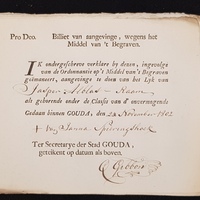 Pro Deo. Billiet van aangevinge, wegens het
Middel van 't Begraven.
IK ondergeschreve verklare by dezen, ingevolge
van de Ordonnantie op't Middel van't Begraven
geëmaneert, aangevinge te doen van het Lyk van
Jasper
als gehorende onder de Classis van d' onvermogende
Gedaan binnen GOUDA, den 23 November 1802
Ter Secretarye der Stad GOUDA,
getekent op datum als boven.